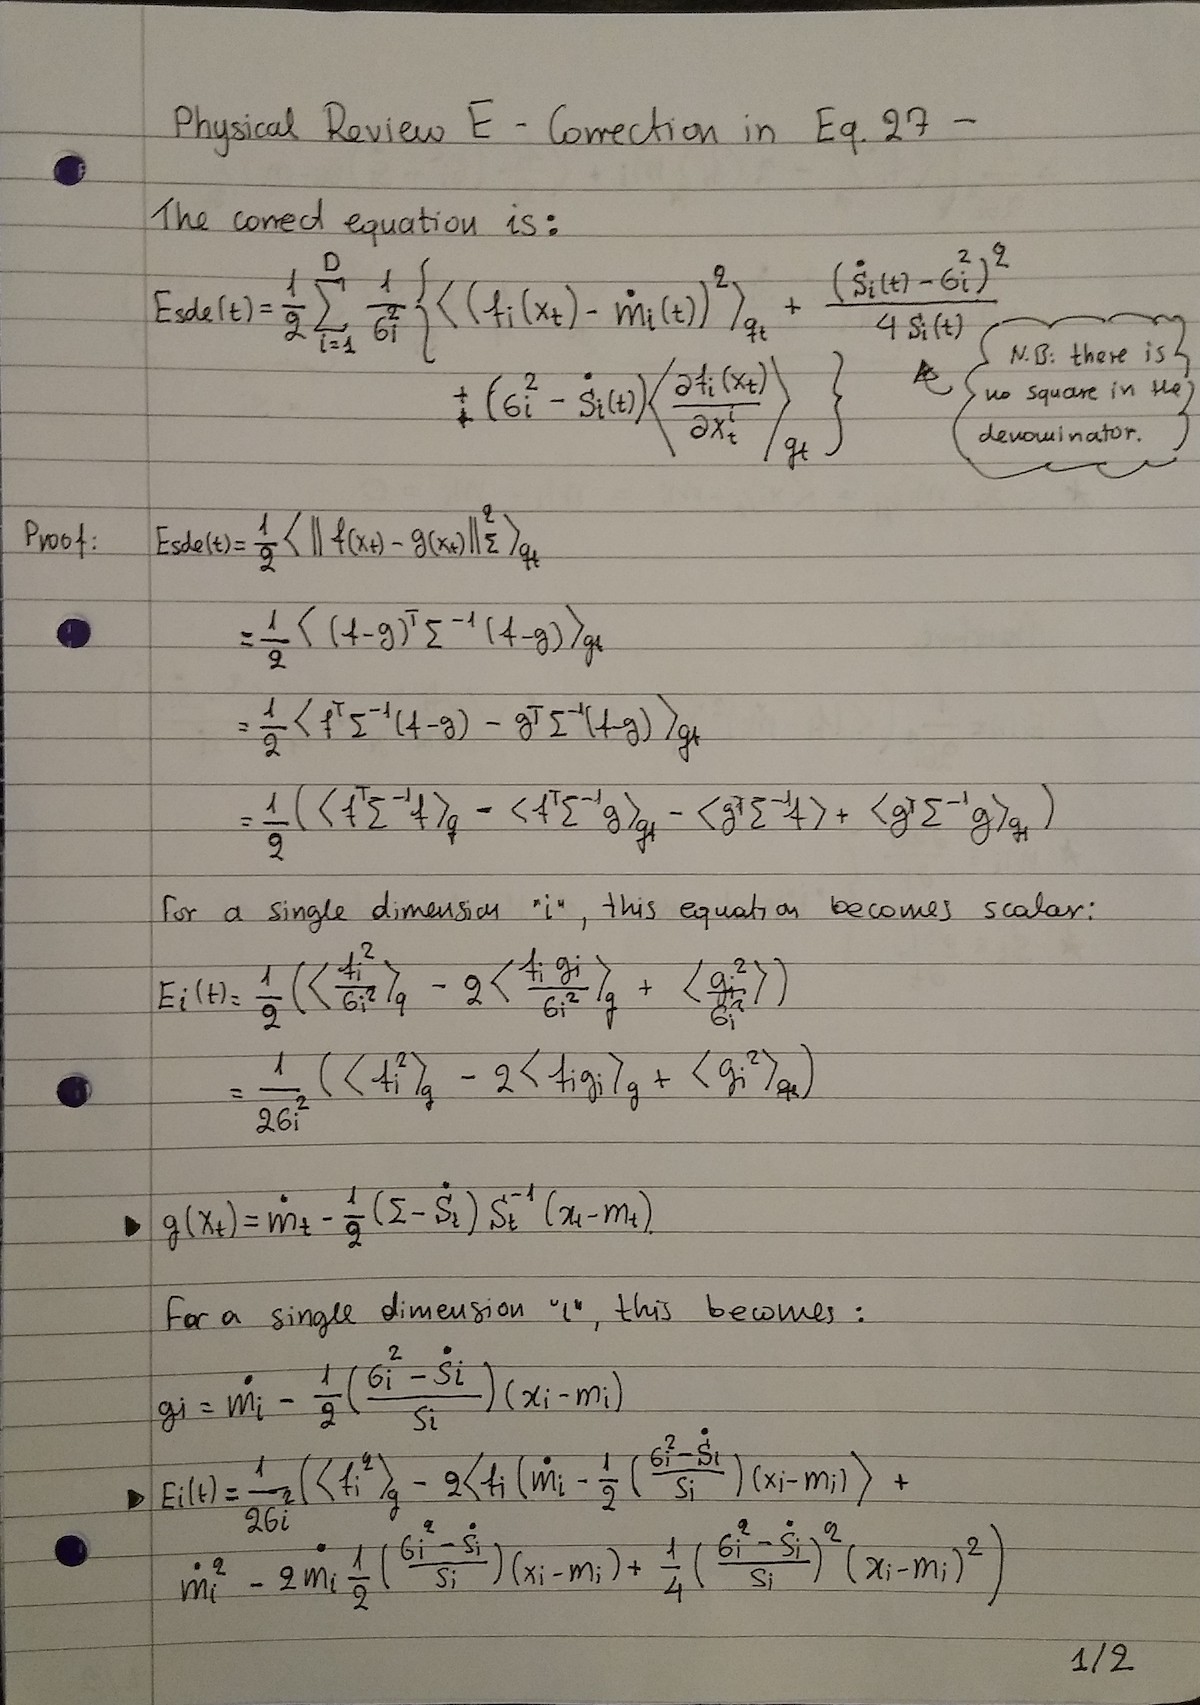 Physical Review E - Correction in Eq. 27 -
The correct equation is:
Esde(t) = 1/2 Σ_{i=1}^{D} 1/σi² { ⟨(fi(xt) - ṁi(t))²⟩_qt + (ṡi(t) - σi²)² / 4 si(t)
+ (σi² - ṡi(t)) ⟨∂fi(xt)/∂xt^i⟩_qt }
N.B: there is
no square in the
denominator.
Proof: Esde(t) = 1/2 ⟨‖f(xt) - g(xt)‖²_Σ⟩_qt
= 1/2 ⟨(f-g)ᵀ Σ⁻¹ (f-g)⟩_qt
= 1/2 ⟨fᵀ Σ⁻¹ (f-g) - gᵀ Σ⁻¹ (f-g)⟩_qt
= 1/2 (⟨fᵀ Σ⁻¹ f⟩_q - ⟨fᵀ Σ⁻¹ g⟩_qt - ⟨gᵀ Σ⁻¹ f⟩ + ⟨gᵀ Σ⁻¹ g⟩_qt)
For a single dimension "i", this equation becomes scalar:
Ei(t) = 1/2 (⟨fi²/σi²⟩_q - 2⟨fi gi/σi²⟩_q + ⟨gi²/σi²⟩)
= 1/2σi² (⟨fi²⟩_q - 2⟨fi gi⟩_q + ⟨gi²⟩_qt)
▶ g(xt) = ṁt - 1/2 (Σ - Ṡt) St⁻¹ (xt - mt)
For a single dimension "i", this becomes:
gi = ṁi - 1/2 ((σi² - ṡi)/si) (xi - mi)
▶ Ei(t) = 1/2σi² (⟨fi²⟩_q - 2⟨fi (ṁi - 1/2 ((σi² - ṡi)/si) (xi - mi)⟩ +
ṁi² - 2ṁi 1/2 ((σi² - ṡi)/si) (xi - mi) + 1/4 ((σi² - ṡi)/si)² (xi - mi)²)
1/2